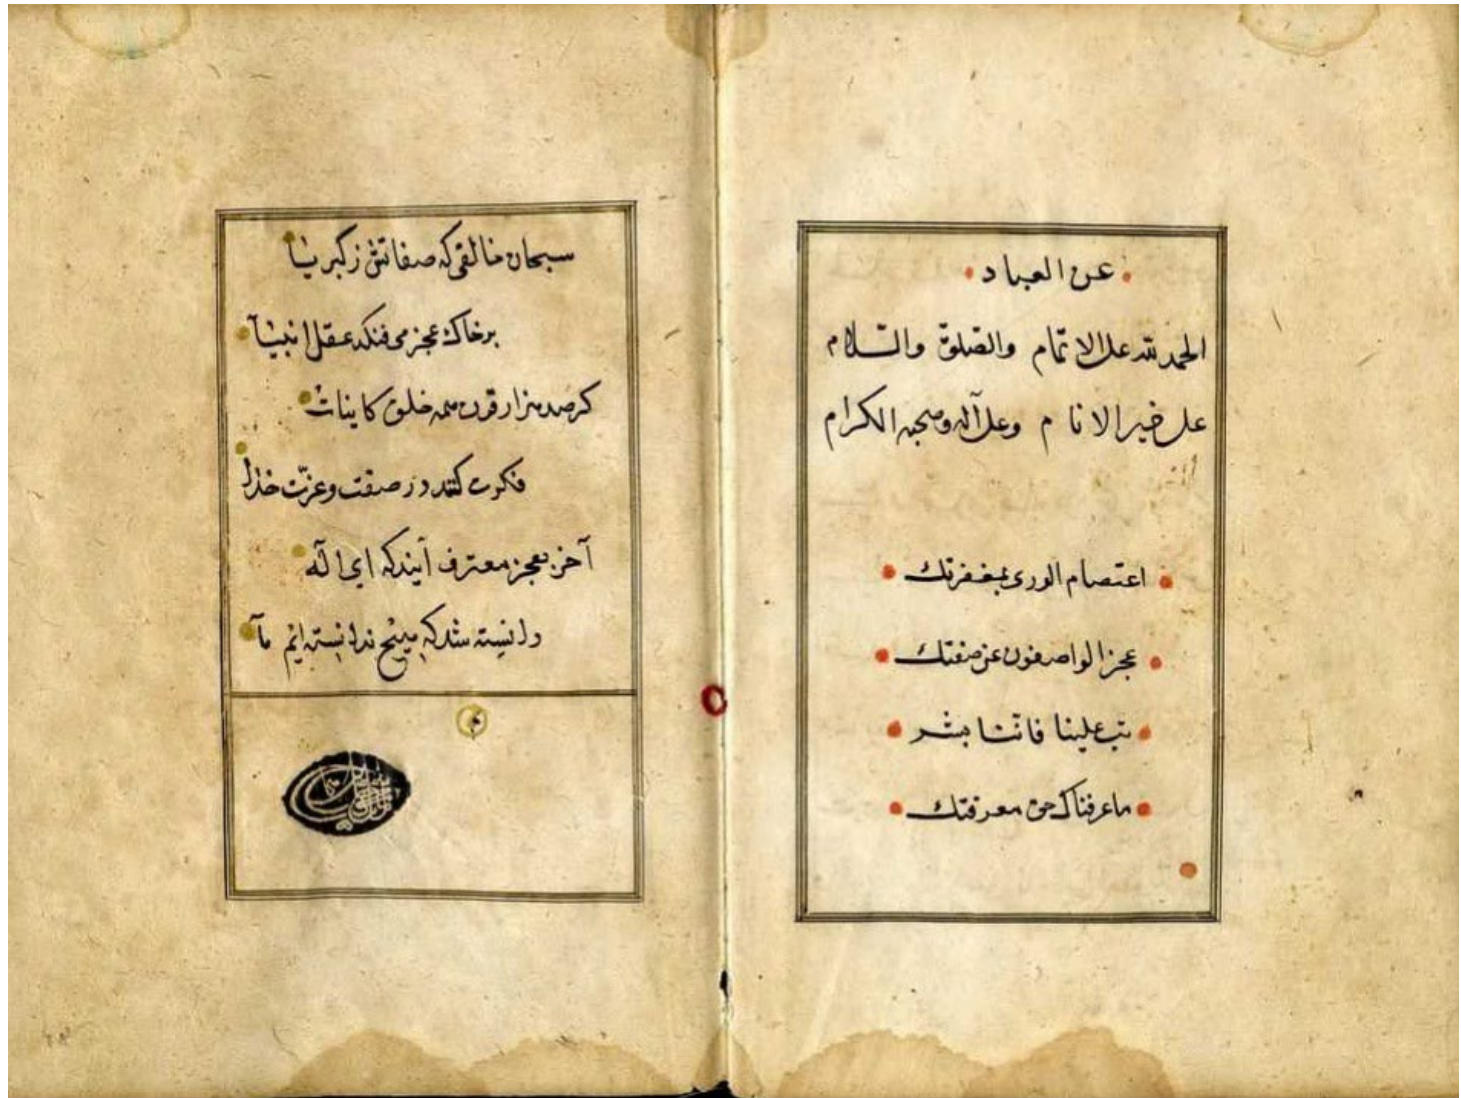 عن العباد
الحمد لله على الاتمام والصلوة والسلام
على خير الانام وعلى آله وصحبه الكرام
اعتصام الورى بمغفرتك
عجز الواصفون عن صفتك
تب علينا فاننا بشر
ماعرفناك حق معرفتك
سبحان خالقی که صفاتش ز کبریا
بر خاک عجز می فنکد عقل انبیا
کر صد هزار قرن همه خلق کاینات
فکرت کنند در صفت و عزت خدا
آخر بعجز معترف آیند که ای اله
دانسته شد که هیچ ندانسته ایم ما